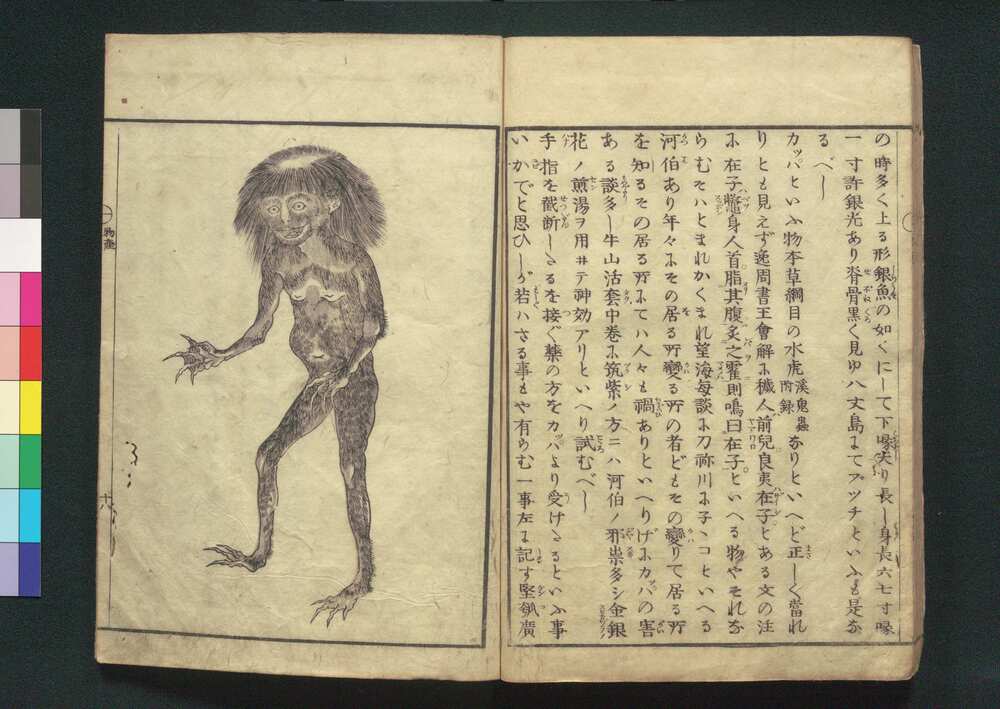 の時多く上る形銀魚の如くにして下喙尖り長し身長六七寸喙
一寸許銀光あり脊骨黒く見ゆ八丈島にてブッチといふも是な
るべし
カッパといふ物本草綱目の水虎溪鬼蟲附録なりといへど正しく當れ
りとも見えず逸周書王會解に穢人前兒良夷在子とある文の注
に在子鼈身人首脂其腹炙之霍則鳴曰在子といへる物やそれな
らむそハとまれかくまれ望海毎談に刀祢川に子ヽコといへる
河伯あり年々にその居る所變る所の者どもその變りて居る所
を知るその居る所にてハ人々も禍ありといへりげにカッパの害
ある談多し牛山活套中巻に筑紫ノ方ニハ河伯ノ邪祟多シ金銀
花ノ煎湯ヲ用ヰテ神効アリといへり試むべし
手指を截断したるを接ぐ藥の方をカッパより受けたるといふ事
いかでと思ひしが若ハさる事もや有らむ一事左に記す堅瓠廣
物産
十八